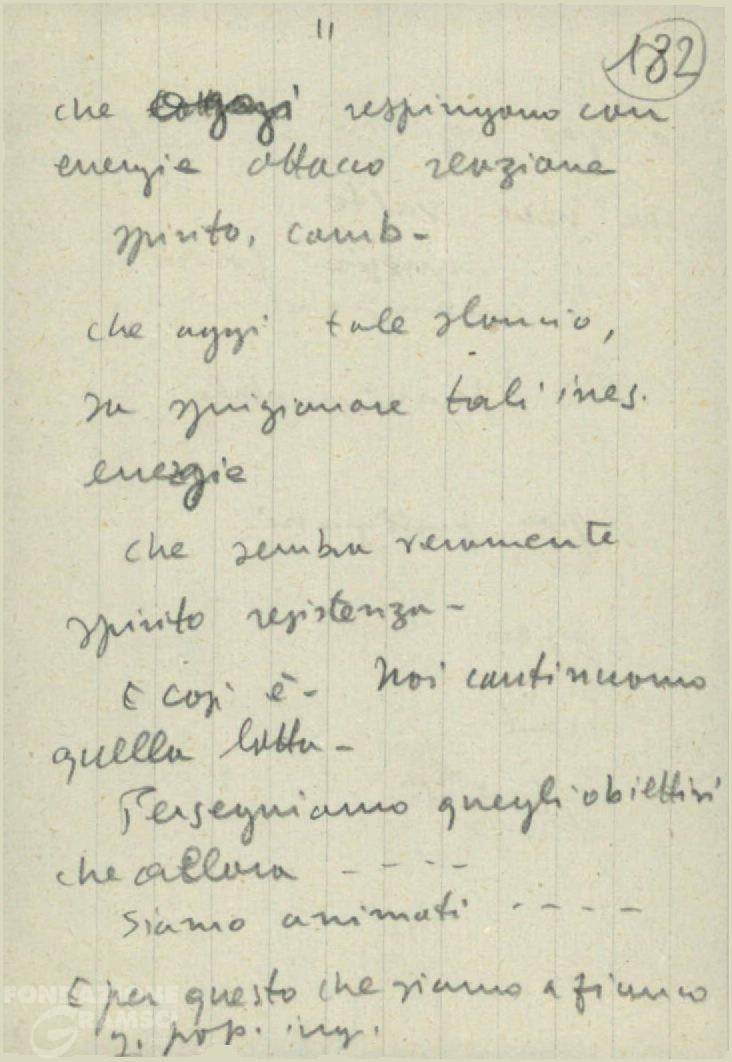 11
132
che oggi respingono con
energie attacco reazione
spirito, comb-
che oggi tale slancio,
sa sprigionare tali ines.
energie
che sembra veramente
spirito resistenza-
E così è- Noi continuiamo
quella lotta-
Perseguiamo quegli obiettivi
che allora ----
Siamo animati ----
E per questo che siamo a fianco
g. pop. ing.
FONDAZIONE
GRAMSCI